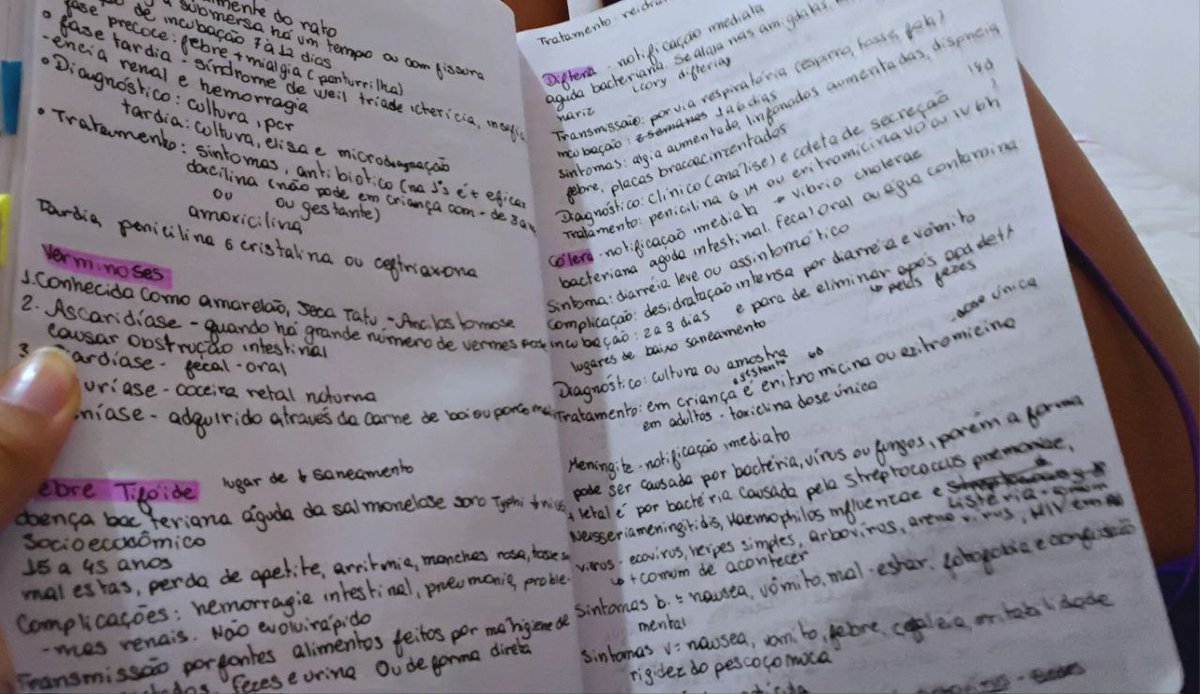 mente do rato
submersa há um tempo ou com fissura
de incubação 7 à 12 dias
fase precoce: febre + mialgia (panturrilha)
• fase tardia - síndrome de weil triade icterícia, insufici
-ência renal e hemorragia
• Diagnóstico: cultura, pcr
tardia: cultura, elisa e
• Tratamento: sintomas, antibiotico (na 1ªs é + eficaz
doxcilina (não pode em criança com - de 9
ou ou gestante)
amoxicilina
Tardia, penicilina G cristalina ou ceftriaxona
Verminoses
1. Conhecida como amarelão, Jeca Tatu - Ancilostomose
2. Ascaridíase - quando há grande número de vermes pode
causar obstrução intestinal
3. ardíase - fecal-oral
uríase - coceira retal noturna
níase - adquirido através da carne de boi ou porco
ebre Tifóide lugar de ↓ saneamento
doença bacteriana aguda da salmonelase soro Typhi
socioeconômico
15 a 45 anos
mal estas, perda de apetite, arritmia, manchas rosa, tosse
Complicações: hemorragia intestinal, pneumonia, proble-
-mas renais. Não evolui rápido
Transmissão por fontes alimentos feitos por má higiene de
fezes e urina. Ou de forma direta
Tratamento: reidra
Difteria - notificação imediata
aguda bacteriana. Se aloja nas amígdalas,
nariz (cory difteria)
Transmissão: por via respiratória (espirro, tosse, fala)
incubação: 1 a 6 dias
sintomas: algia aumentada, linfonodos aumentadas, dispneia
febre, placas bracoacinzentados
Diagnóstico: Clínico (análise) e coleta de secreção
Tratamento: penicilina G IM ou eritromicina VO ou IV 6h
Cólera - notificação imediata → vibrio cholerae
bacteriana aguda intestinal, fecal oral ou água contamina
Sintoma: diarreia leve ou assintomático
Complicação: desidratação intensa por diarreia e vômito
incubação: 2 a 3 dias e para de eliminar após
lugares de baixo saneamento ↳ pelas fezes
Diagnóstico: cultura ou amostra
Tratamento: em criança e gestante é eritromicina ou azitromicina dose única
em adultos - toxiclina dose única
Meningite - notificação imediato
pode ser causada por bactéria, vírus ou fungos, porém a forma
+ letal é por bactéria causada pela streptococcus pneumonae,
Neisseria meningitidis, Haemophilos influenzae e Listéria
virus - ecovirus, herpes simples, arbovirus, arenavirus, HIV
↳ + comum de acontecer
Sintomas b. = nausea, vômito, mal-estar, fotofobia e confusão
mental
Sintomas v = nausea, vomito, febre, cefaleia, irritabilidade
rigidez do pescoço/nuca